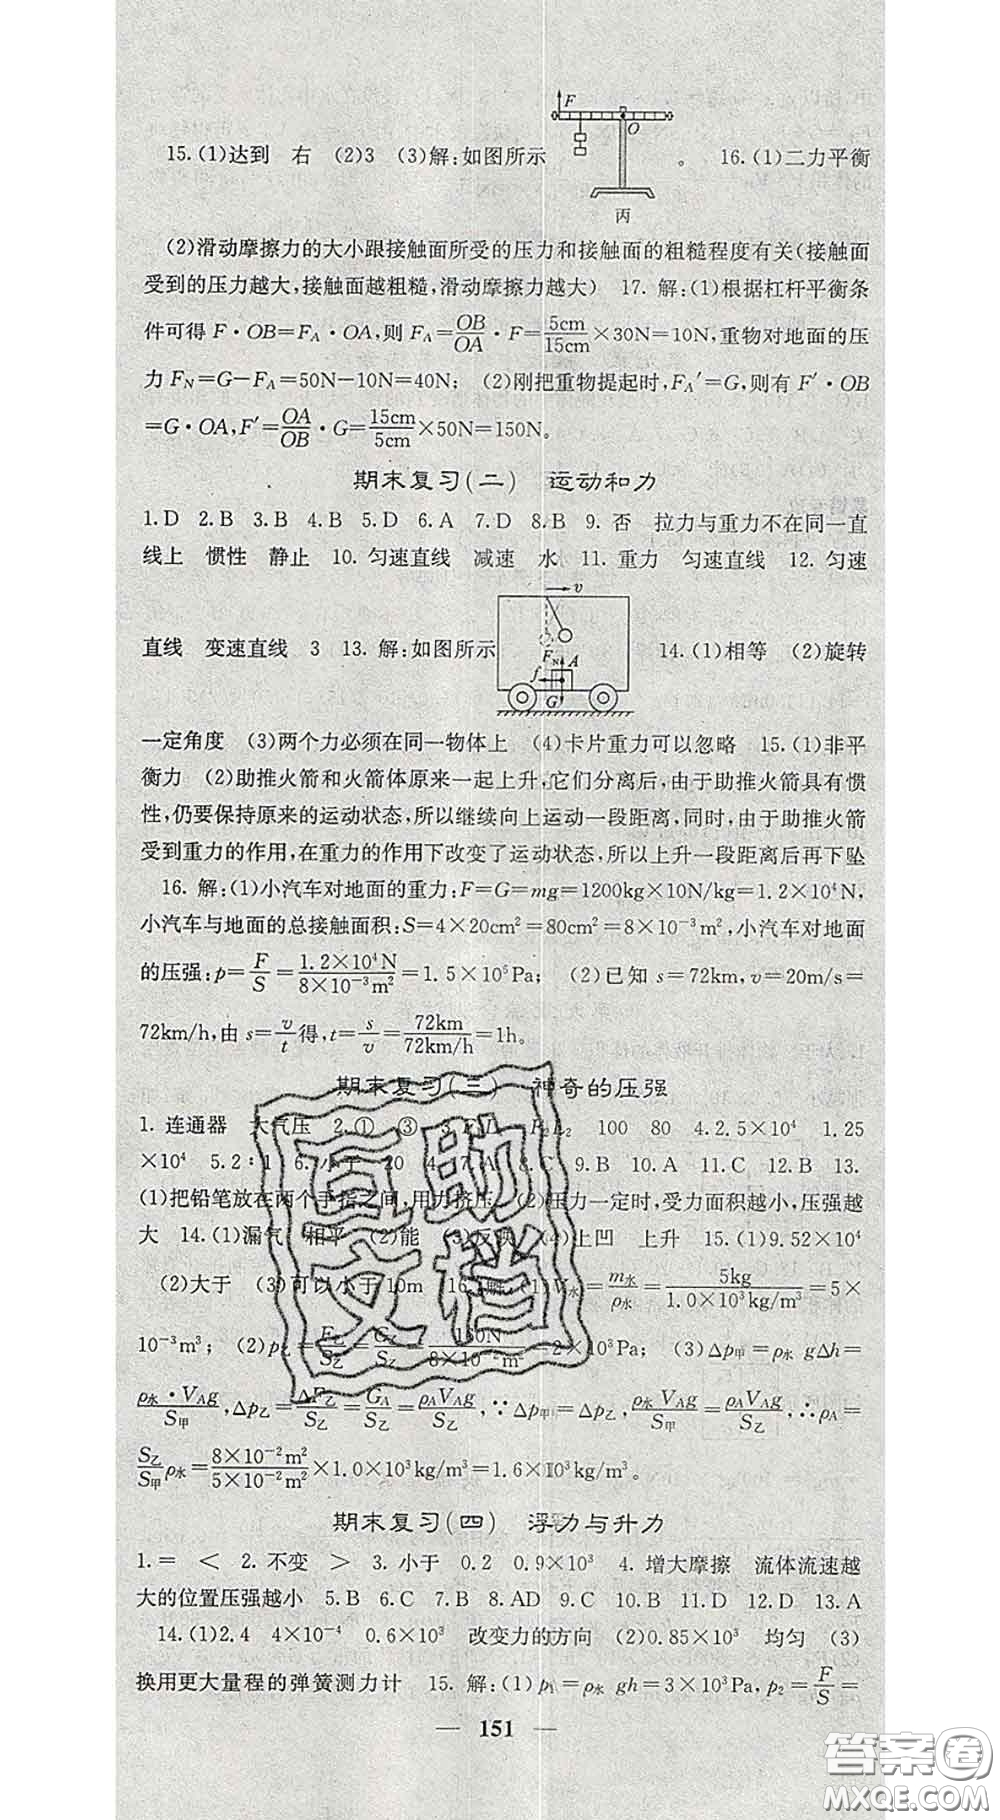 F
O
丙
15.(1)达到 右 (2)3 (3)解:如图所示 。 16.(1)二力平衡
(2)滑动摩擦力的大小跟接触面所受的压力和接触面的粗糙程度有关(接触面
受到的压力越大,接触面越粗糙,滑动摩擦力越大) 17. 解:(1)根据杠杆平衡条
件可得 F·OB=F_A·OA,则 F_A=OB/OA·F=5cm/15cm×30N=10N,重物对地面的压
力 F_N=G-F_A=50N-10N=40N; (2)刚把重物提起时,F_A′=G,则有 F′·OB
=G·OA,F′=OA/OB·G=15cm/5cm×50N=150N。
期末复习(二) 运动和力
1.D 2.B 3.B 4.B 5.D 6.A 7.D 8.B 9. 否 拉力与重力不在同一直
线上 惯性 静止 10. 匀速直线 减速 水 11. 重力 匀速直线 12. 匀速
v
F_N A
f
G
直线 变速直线 3 13. 解:如图所示 14.(1)相等 (2)旋转
一定角度 (3)两个力必须在同一物体上 (4)卡片重力可以忽略 15.(1)非平
衡力 (2)助推火箭和火箭体原来一起上升,它们分离后,由于助推火箭具有惯
性,仍要保持原来的运动状态,所以继续向上运动一段距离,同时,由于助推火箭
受到重力的作用,在重力的作用下改变了运动状态,所以上升一段距离后再下坠
16. 解:(1)小汽车对地面的重力:F=G=mg=1200kg×10N/kg=1.2×10⁴N,
小汽车与地面的总接触面积:S=4×20cm²=80cm²=8×10⁻³m²,小汽车对地面
的压强:p=F/S=1.2×10⁴N/8×10⁻³m²=1.5×10⁵Pa; (2)已知 s=72km,v=20m/s=
72km/h,由 s=v/t得,t=s/v=72km/72km/h=1h。
期末复习(三) 神奇的压强
1. 连通器 大气压 2.① ③ 3. F₂L₂ 100 80 4.2.5×10⁴ 1.25
×10⁴ 5.2∶1 6. 小于 20 4 7.A 8.C 9.B 10.A 11.C 12.B 13.
(1)把铅笔放在两个手指之间,用力挤压 (2)压力一定时,受力面积越小,压强越
大 14.(1)漏气 相平 (2)能 (3)反映 (4)上凹 上升 15.(1)9.52×10⁴
(2)大于 (3)可以小于10m 16. 解:(1)V水=m水/ρ水=5kg/1.0×10³kg/m³=5×
10⁻³m³; (2)p乙=F乙/S乙=G乙/S乙=160N/8×10⁻²m²=2×10³Pa; (3)Δp甲=ρ水 gΔh=
ρ水·V_A g/S甲,Δp乙=ΔF乙/S乙=G_A/S乙=ρ_A V_A g/S乙,∵Δp甲=Δp乙,ρ水V_A g/S甲=ρ_A V_A g/S乙,∴ρ_A=
S乙/S甲ρ水=8×10⁻²m²/5×10⁻²m²×1.0×10³kg/m³=1.6×10³kg/m³。
期末复习(四) 浮力与升力
1.= < 2. 不变 > 3. 小于 0.2 0.9×10³ 4. 增大摩擦 流体流速越
大的位置压强越小 5.B 6.C 7.B 8.AD 9.C 10.B 11.D 12.D 13.A
14.(1)2.4 4×10⁻⁴ 0.6×10³ 改变力的方向 (2)0.85×10³ 均匀 (3)
换用更大量程的弹簧测力计 15. 解:(1)p₁=ρ水 gh=3×10³Pa,p₂=F/S=
— 151 —
互助
文档
答案圈
MXQE.COM